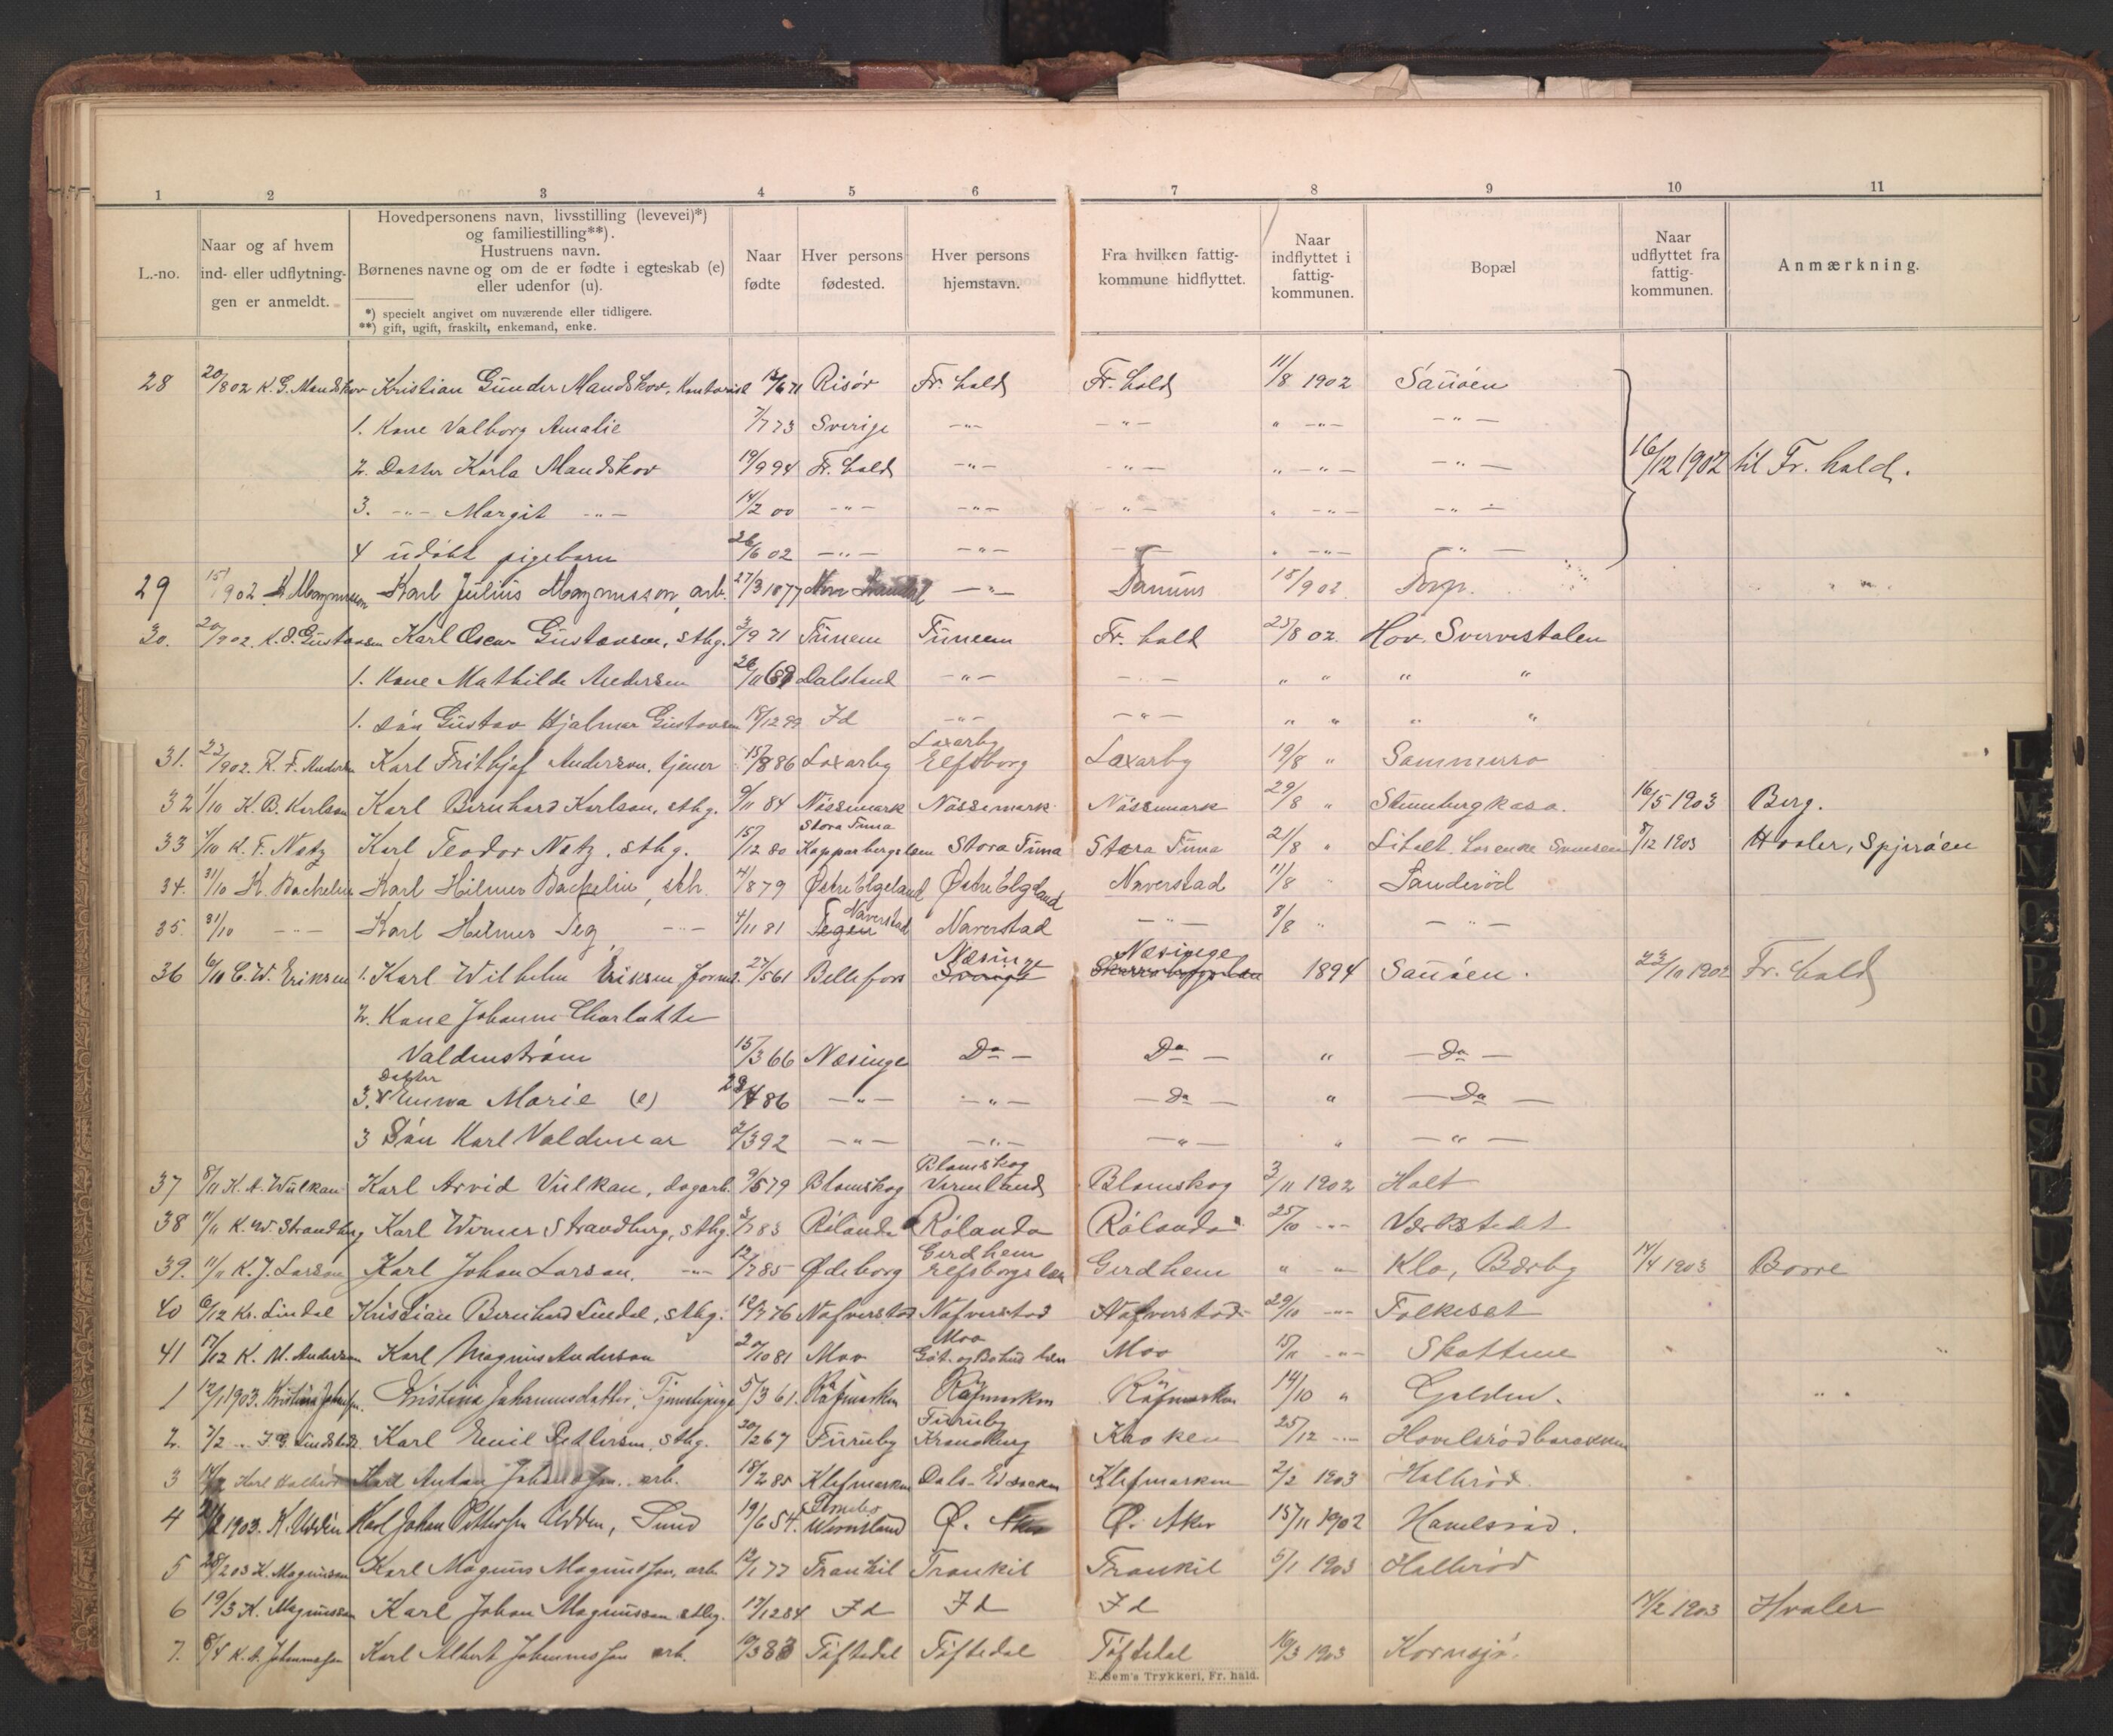 1 2 3 4 5 6 7 8 9 10 11
L.-no. | Naar og af hvem ind- eller udflytningen er anmeldt. | Hovedpersonens navn, livsstilling (levevei)*) og familiestilling**). Hustruens navn. Børnenes navne og om de er fødte i egteskab (e) eller udenfor (u). | Naar fødte | Hver persons fødested. | Hver persons hjemstavn. | Fra hvilken fattigkommune hidflyttet. | Naar indflyttet i fattigkommunen. | Bopæl | Naar udflyttet fra fattigkommunen. | Anmærkning.
*) specielt angivet om nuværende eller tidligere.
**) gift, ugift, fraskilt, enkemand, enke.
28 20/8 02 K. G. Mandskov Kristian Gunder Mandskov, Kontorist /6 71 Risør Fr. hald Fr. hald 11/8 1902 Sauøen
1. Kone Valborg Amalie 7/7 73 Sverige -"- -"- " -"- -"-
2. Datter Karla Mandskov 19/9 94 Fr. hald -"- -"- " -"- -"- 16/12 1902 til Fr. hald.
3. -"- Margit -"- 14/2 00 -"- -"- -"- " -"- -"-
4 udøbt pigebarn 26/6 02 -"- -"- -"- " -"- -"-
29 15/9 02 K Magnusson Karl Julius Magnusson, arb. 27/3 1877 -"- Tanums 18/9 02 Torp.
30. 20/9 02. K. O. Gustavsen Karl Oscar Gustavsen, sthg. 3/9 71 Tuneem Tuneem Fr. hald 25/8 02. Hov. Svervestalen
1. Kone Mathilde Andersen 26/11 69 Dalsland -"- -"- " " " "
1. søn Gustav Hjalmar Gustavsen 18/12 99 Id -"- -"- " " " "
31. 22/9 02. K. F. Anderson Karl Frithjof Anderson, tjener 15/8 86 Laxarby Laxarby Elfsborg Laxarby 19/8 " Sommerro
32 1/10 K. B. Karlson Karl Bernhard Karlson, sthg. 9/11 84 Nössemark Nössemark Nössemark 29/8 " Stumbergkasa. 16/5 1903 Berg.
33 4/10 K. T. Natz Karl Teodor Natz, sthg. 15/12 80 Stora Tuna Kopparbergslæn Stora Tuna Stora Tuna 21/8 " Litlet. Lorense Svensen 8/12 1903 Hvaler, Spjærøen
34. 31/10 K. Backelin Karl Hilmer Backelin, sth. 4/8 79 Østre Elgeland Østre Elgeland Naverstad 11/8 " Sanderød
35. 31/10 -"- Karl Hilmer Teg -"- 4/11 81 Tegen Naverstad Naverstad -"- 8/8 " -"-
36 6/10 C. W. Eriksen 1. Karl Wilhelm Eriksen, formd. 27/5 61 Bellefors Næsinge Sverige Næsinge 1894 Sauøen. 23/10 1902 Fr. hald
2. Kone Johanne Charlotte
Valdenstrøm 15/3 66 Næsinge Do - Do - " - Do -
Datter
3. Emma Marie (e) 29/4 86 -"- -"- - Do - " - Do -
3 Søn Karl Valdemar 2/3 92 -"- -"- -"- " -"-
37 8/11 K. A. Wulkan Karl Arvid Vulkan, dagarb. 9/5 79 Blomskog Blomskog Vermland Blomskog 3/11 1902 Holt
38 11/11 K. W. Strandberg Karl Werner Strandberg, sthg. 3/7 83 Rölanda Rölanda Rölanda 25/10 -"- Værkstedt
39. 11/11 K. J. Larson Karl Johan Larson, -"- 12/7 85 Ødeborg Gerdhem Elfsborgs læn Gerdhem " -"- Klo, Bærby 14/4 1903 Borre
40 6/12 Kr. Lindal Kristian Bernhard Lindal, sthg. 12/7 76 Nafverstad Nafverstad Nafverstad 29/10 -"- Folkeset
41 17/12 K. M. Anderson Karl Magnus Anderson 20/10 81 Moo Moo Göt. og Bohus læn Moo 15/11 -"- Skottene
1 12/1 1903. Kristina Johansen Kristina Johannesdatter, Tjenestepige 5/3 61. Räfmarken Räfmarken Räfmarken 14/10 " Galden.
2. 7/2 -"- Karl Emil Pettersen, sthg. 20/2 67 Furuby Furuby Kronoberg Kroken 25/12 -"- Hovelsrødbarakken
3 14/2 Karl Halbrød Karl Anton Johansson, arb. 18/2 85 Klefmarken Dals-Ed socken Klefmarken 2/2 1903 Halbrød
4 2/2 1903. K. Uddén Karl Johan Pettersen Udden, Sund 19/6 54. Wermland Ø. Aker Ø. Aker 15/11 1902 Havelsrød.
5 28/2 03 K. Magnusson Karl Magnus Magnusson, arb. 12/1 77 Trankil Trankil Trankil 5/1 1903 Halbrød
6 19/3 K. Magnusson Karl Johan Magnusson sthg. 17/12 84 Id Id Id 14/2 1903 Hvaler
7. 8/4 K. A. Johannesson Karl Albert Johannesson arb. 10/3 83 Töftedal Töftedal Töftedal 16/3 1903 Kornsjø.
E. Sem's Trykkeri, Fr. hald.
L M N O P R S T U